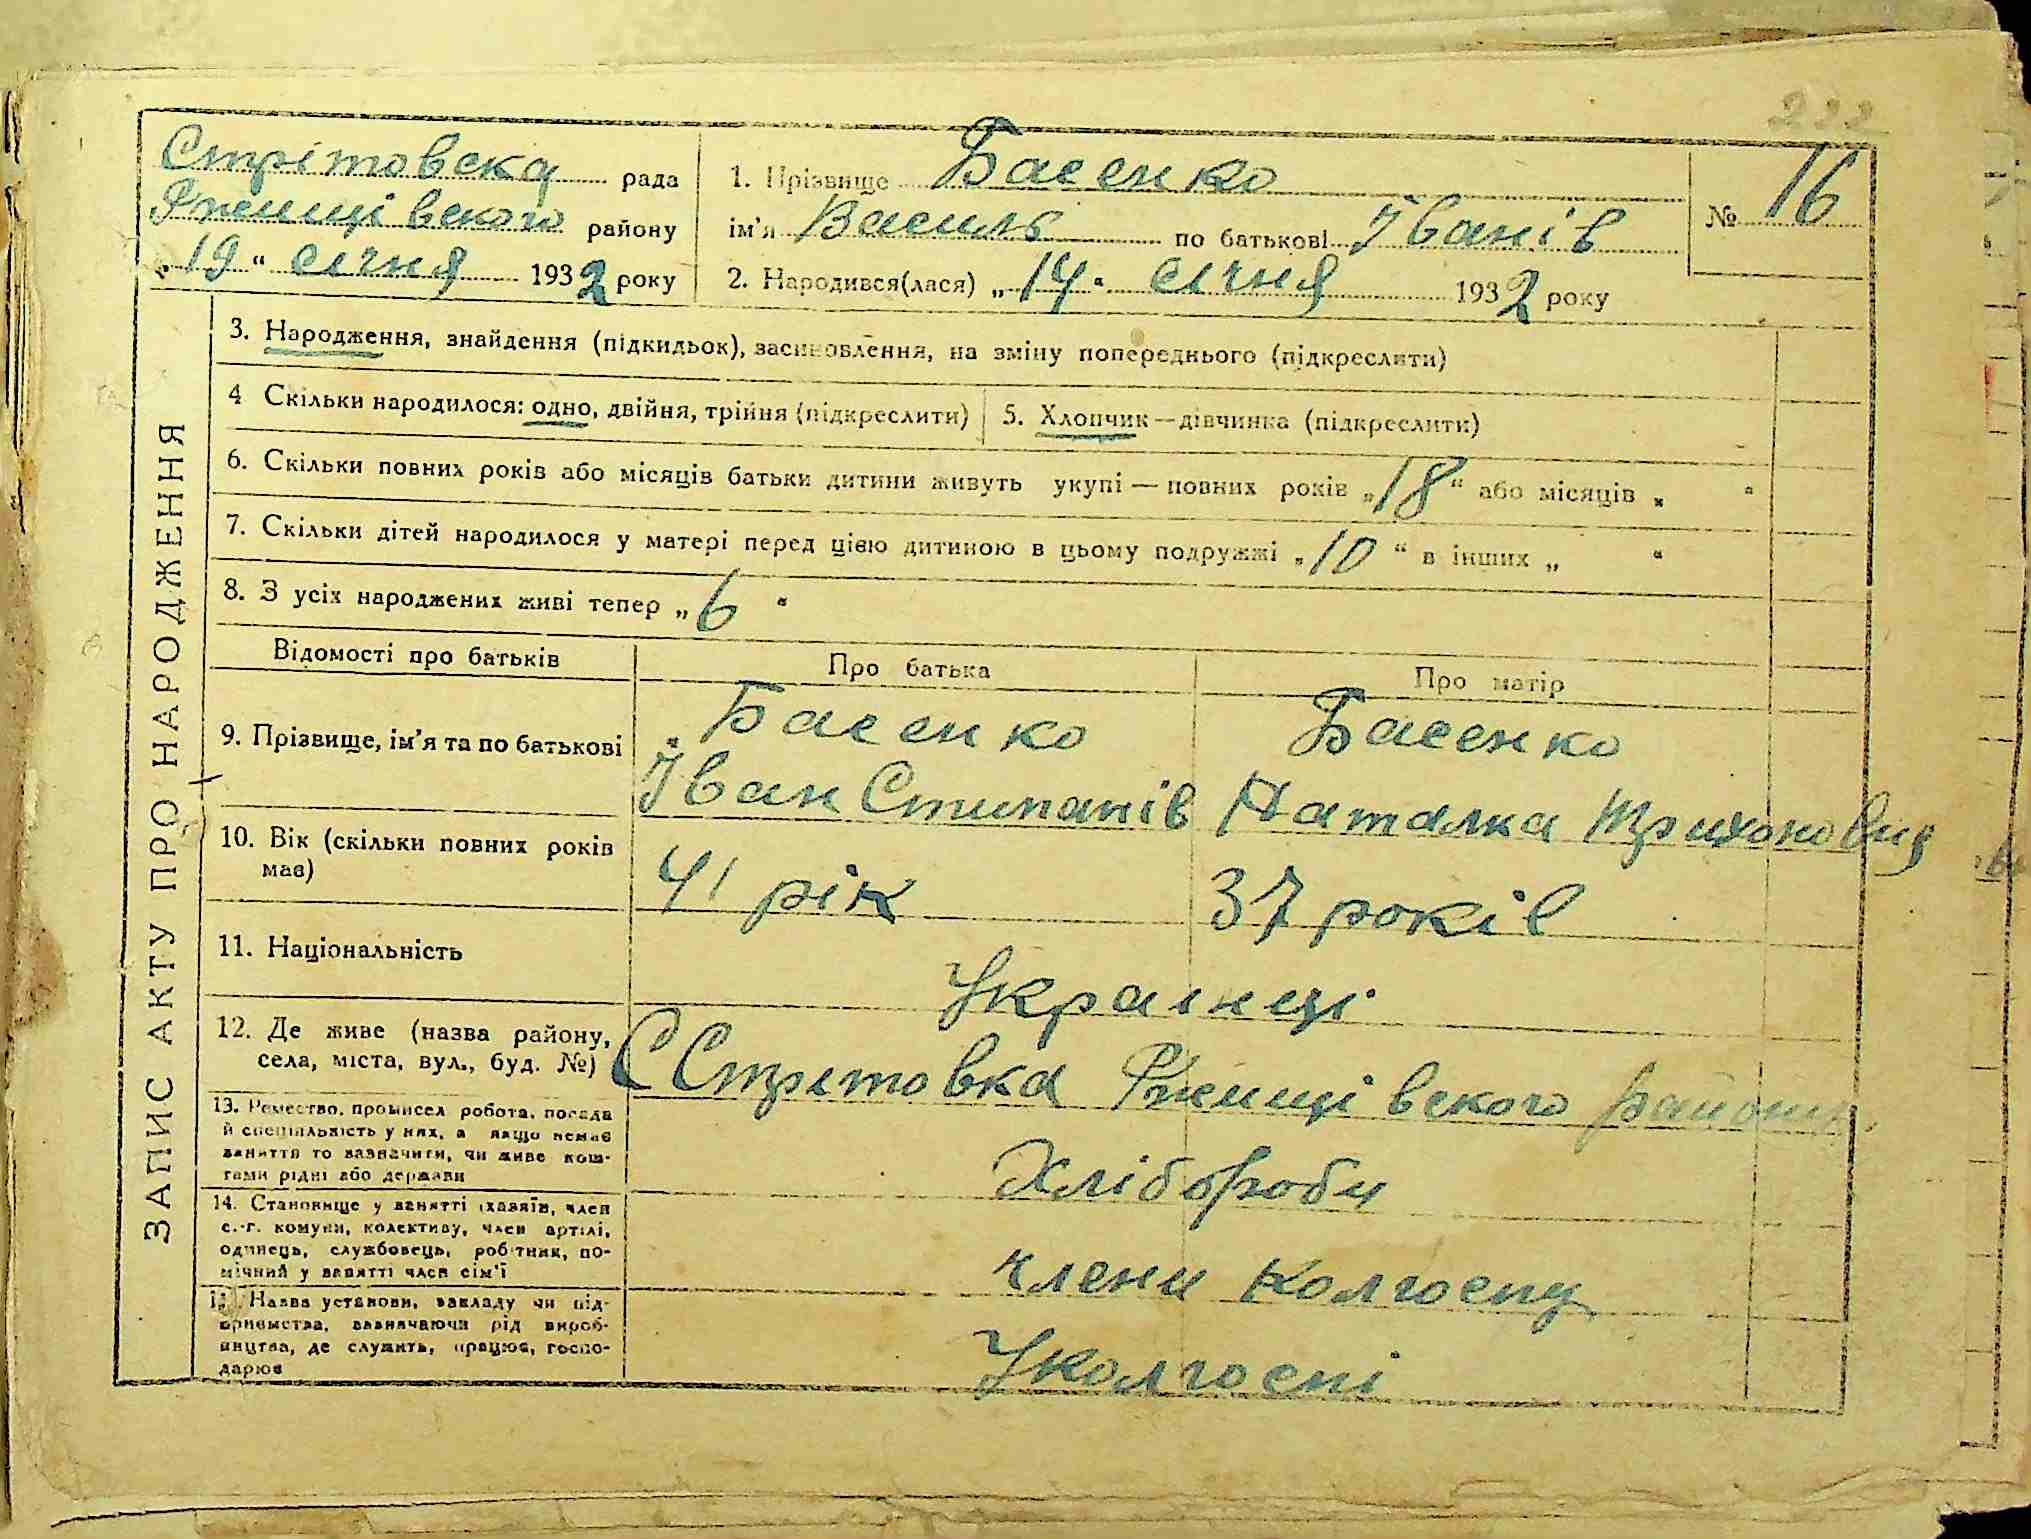 222
Стрітовска рада
Ржищівского району
„19“ січня 1932 року
1. Прізвище Басенко
ім'я Василь по батькові Іванів
2. Народився(лася) „14“ січня 1932 року
№ 16
ЗАПИС АКТУ ПРО НАРОДЖЕННЯ
3. Народження, знайдення (підкидьок), засиновлення, на зміну попереднього (підкреслити)
4 Скільки народилося: одно, двійня, трійня (підкреслити)
5. Хлопчик—дівчинка (підкреслити)
6. Скільки повних років або місяців батьки дитини живуть укупі — повних років „18“ або місяців „ “
7. Скільки дітей народилося у матері перед цією дитиною в цьому подружжі „10“ в інших „ “
8. З усіх народжених живі тепер „6“
Відомості про батьків
Про батька
Про матір
9. Прізвище, ім'я та по батькові
Басенко
Іван Стипанів
Басенко
Наталка Трихоновна
10. Вік (скільки повних років
мав)
41 рік
37 років
11. Національність
Украінці
12. Де живе (назва району,
села, міста, вул., буд. №)
С Стрітовка Ржищівского району
13. Ремество, промисел робота, посада
й спеціяльність у них, а якщо немає
заняття то зазначити, чи живе кош-
тами рідні або держави
Хлібороби
14. Становище у занятті (хазяїн, член
с.-г. комуни, колективу, член артілі,
одинець, службовець, робітник, по-
мічний у занятті член сім'ї
члени колгоспу
15. Назва установи, закладу чи під-
приємства, зазначаючи рід вироб-
ництва, де служить, працює, госпо-
дарює
У колгоспі